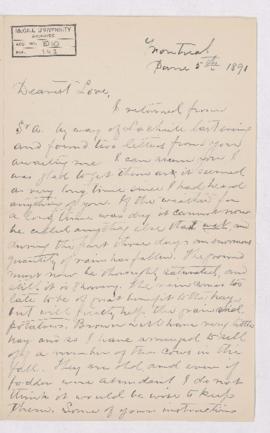 McGILL UNIVERSITY
ARCHIVES
ACC. NO.
REF.
Montreal
June 5th 1891
Dearest Love,
I returned from
St A. by way of Lachine last evening
and found two letters from you
awaiting me I can assure you I
was glad to get them as it seemed
a very long time since I had heard
anything of you. If the weather for
a long time was dry it cannot now
be called anything else than wet, as
during the past three days an enormous
quantity of rain has fallen. The ground
must now be thoroughly saturated, and
still it is showery. The rain was too
late to be of great benefit to the hay
but will greatly help the grain and
potatoes. Brown will have very little
hay and so I have arranged to sell
off a number of the cows in the
fall. They are old and even if
fodder were abundant I do not
think it would be wise to keep
them. Some of your instructions